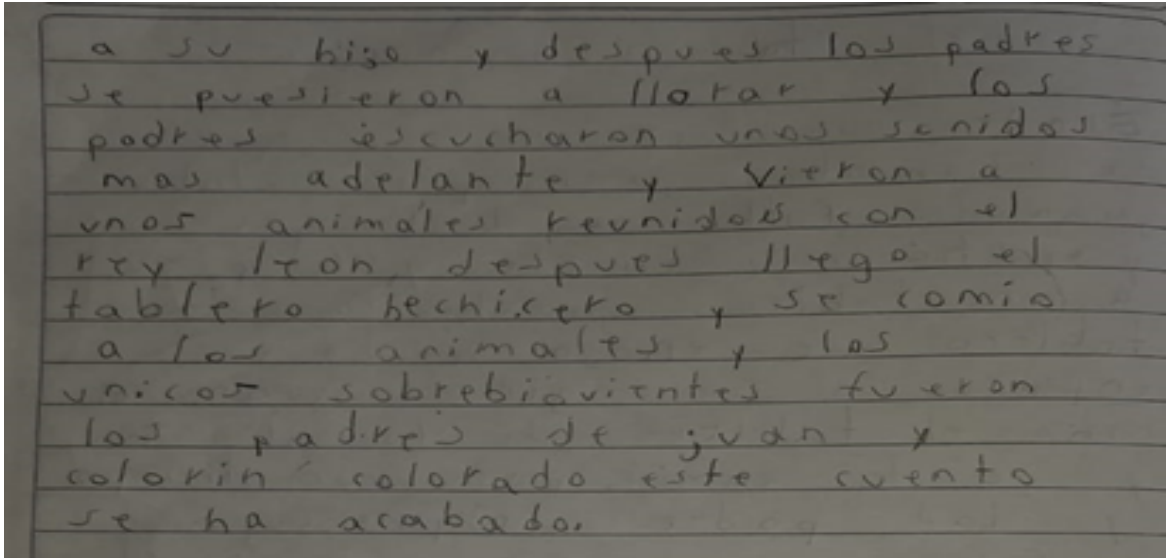 a su hijo y despues los padres
se puesieron a llorar y los
padres escucharon unos sonidos
mas adelante y vieron a
unos animales reunidos con el
rey leon despues llego el
tablero hechicero y se comio
a los animales y los
unicos sobrebiovientes fueron
los padres de juan y
colorin colorado este cuento
se ha acabado.